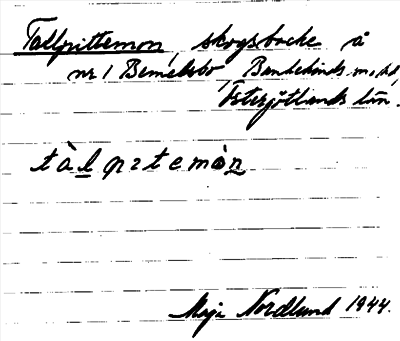 Tallpittemon, skogsbacke å
nr 1 Bemelsbo, Bankekinds m. hd,
Östergötlands län.
tàl pɪtemòn
Maja Nordlund 1944.